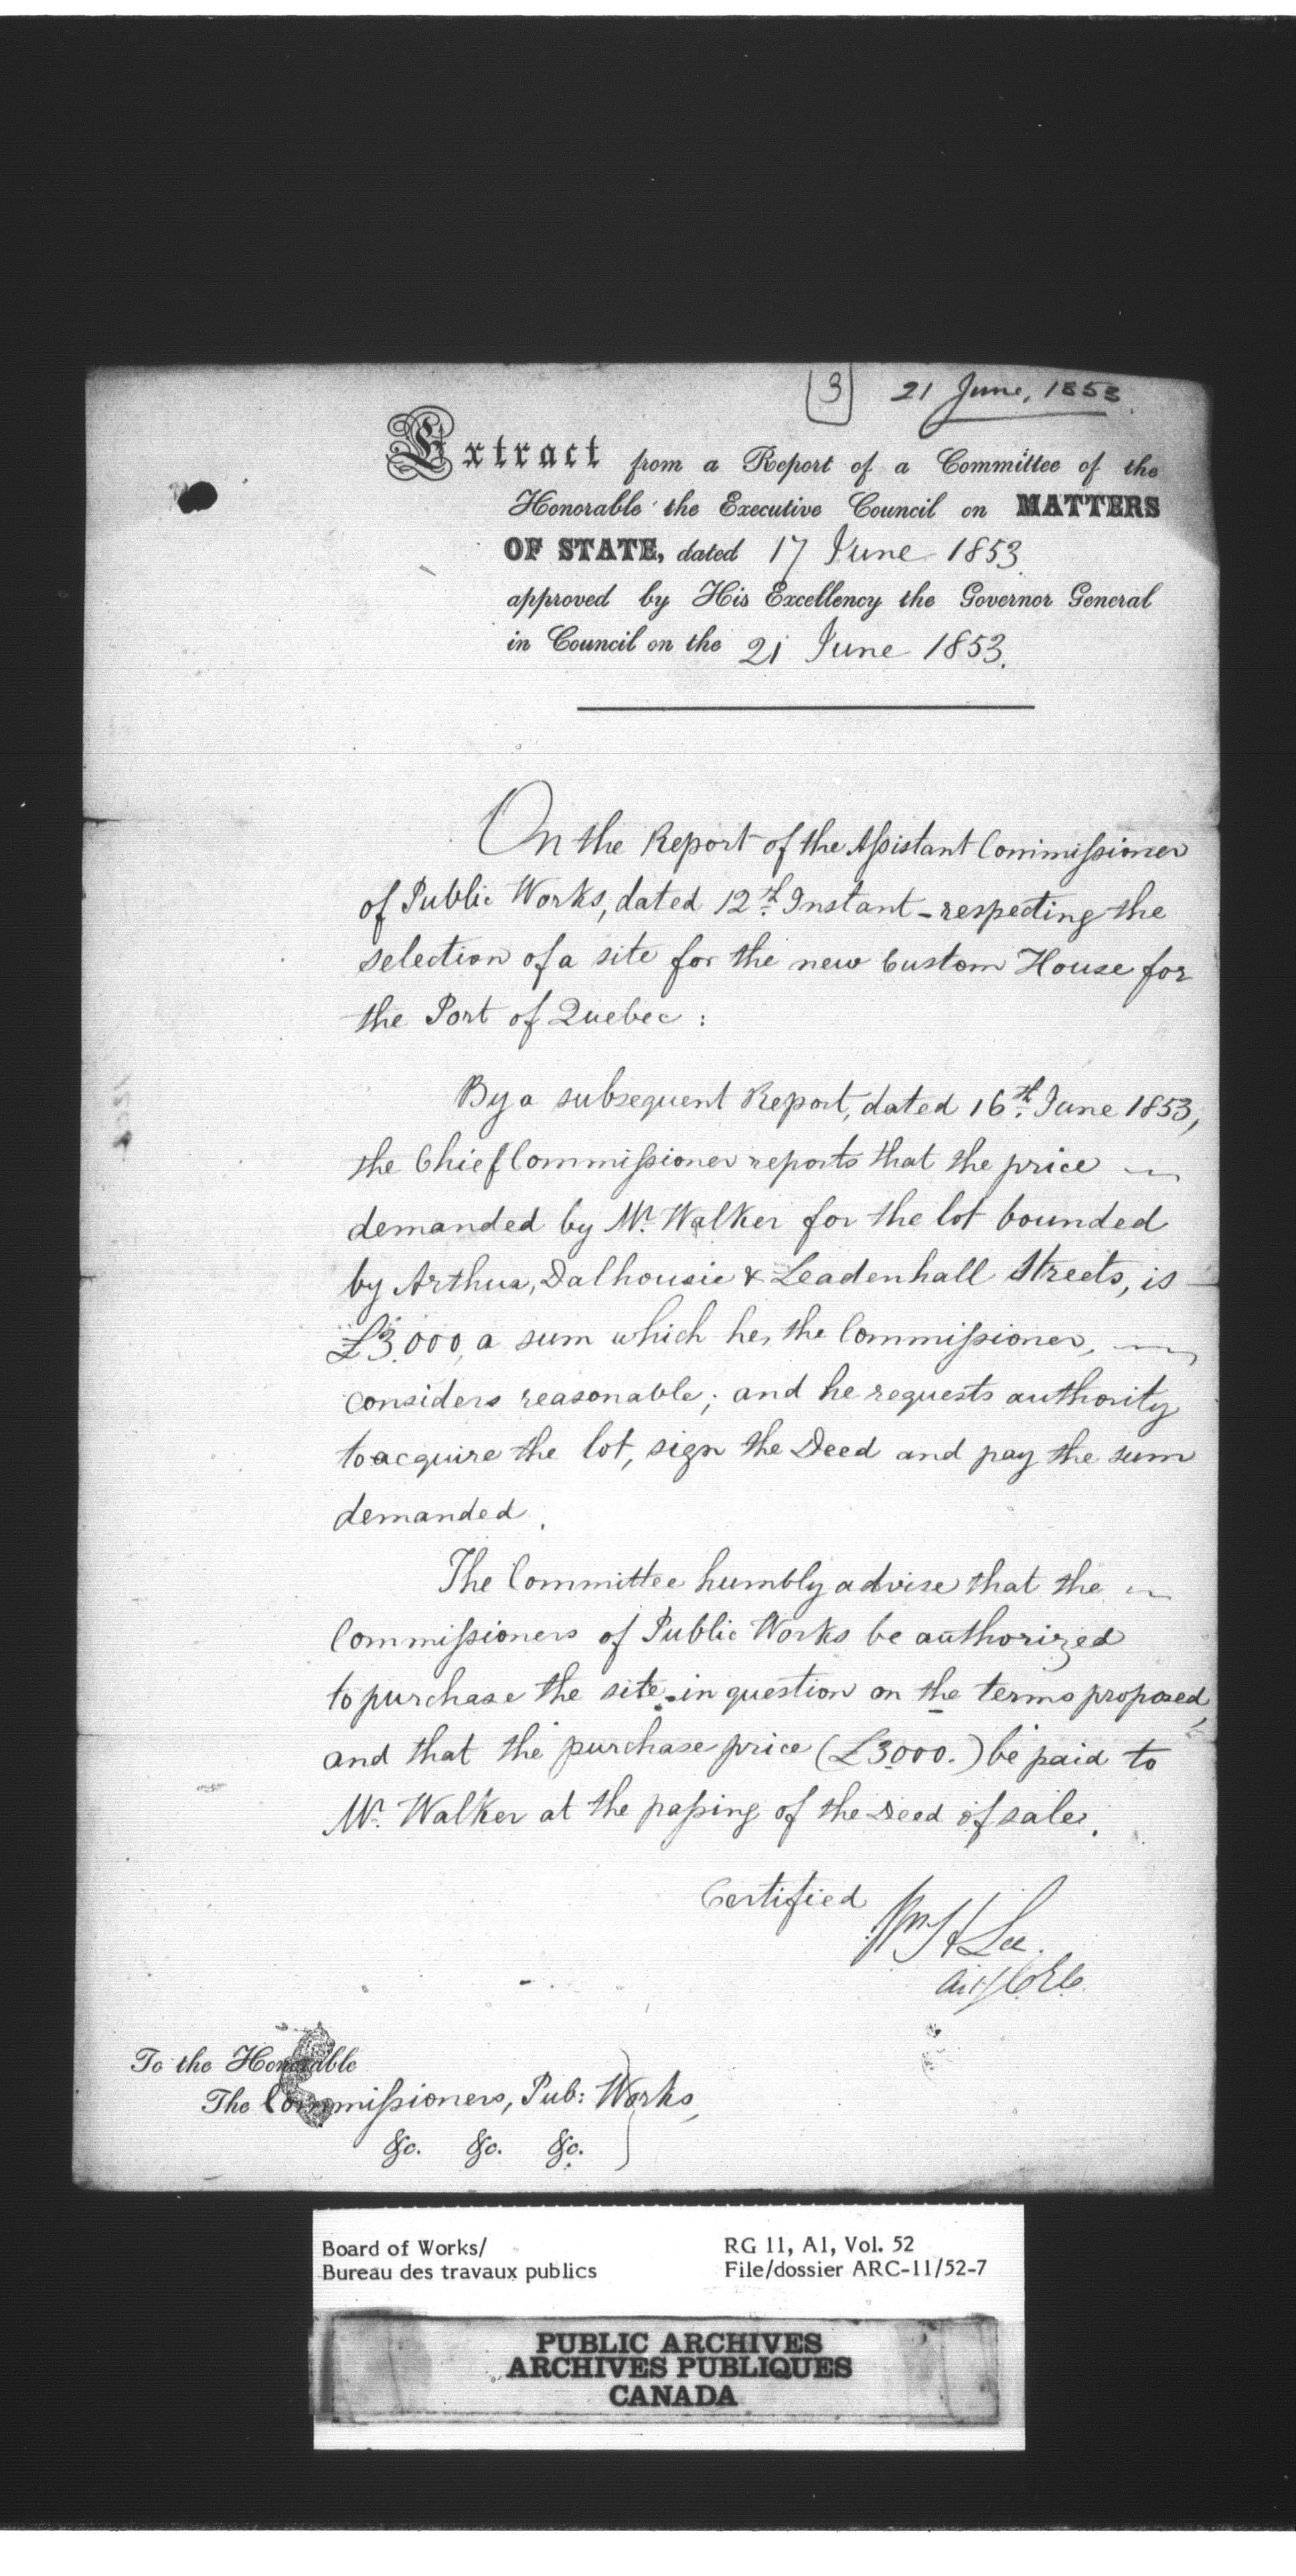 3 21 June, 1853
Extract from a Report of a Committee of the
Honorable the Executive Council on MATTERS
OF STATE, dated 17 June 1853
approved by His Excellency the Governor General
in Council on the 21 June 1853.
On the Report of the Assistant Commissioner
of Public Works, dated 12th Instant - respecting the
selection of a site for the new Custom House for
the Port of Quebec:
By a subsequent Report, dated 16th June 1853,
the Chief Commissioner reports that the price
demanded by Mr. Walker for the lot bounded
by Arthur, Dalhousie & Leadenhall Streets, is
£3.000, a sum which he, the Commissioner,
considers reasonable; and he requests authority
to acquire the lot, sign the Deed and pay the sum
demanded.
The Committee humbly advise that the
Commissioners of Public Works be authorized
to purchase the site in question on the terms proposed,
and that the purchase price (£3000.) be paid to
Mr. Walker at the passing of the Deed of sale.
Certified
Wm H Lee.
C.E.C.
To the Honorable
The Commissioners, Pub: Works,
&c. &c. &c.
Board of Works/
Bureau des travaux publics
RG 11, A1, Vol. 52
File/dossier ARC-11/52-7
PUBLIC ARCHIVES
ARCHIVES PUBLIQUES
CANADA